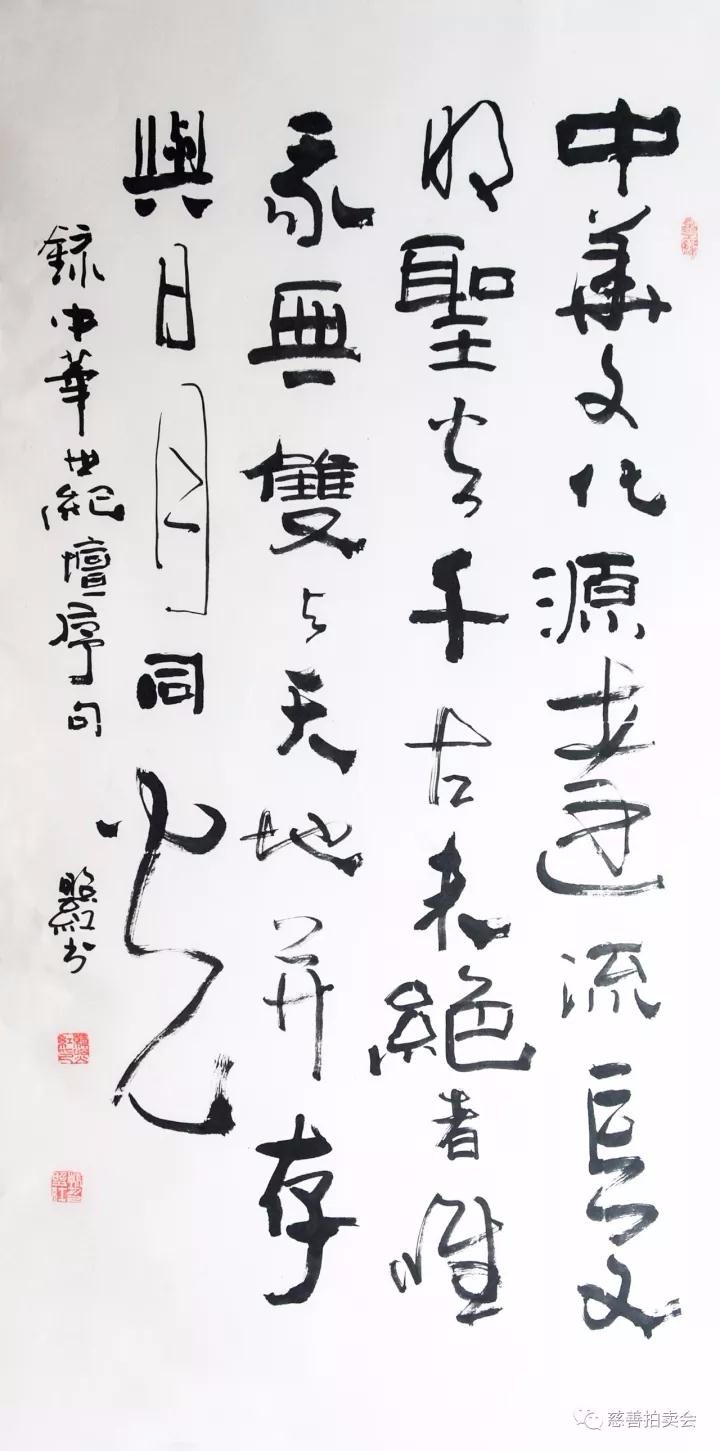 中華文化源遠流長文
明聖火千古未絕者惟
我無雙与天地并存
與日月同光
錄中華世紀壇序句
照紅书
慈善拍卖会